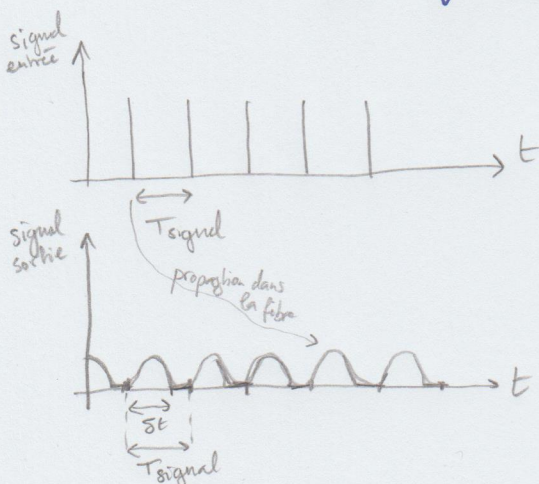 signal
entrée
t
Tsignal
signal
sortie
propagtion dans
la fibre
t
δt
Tsignal